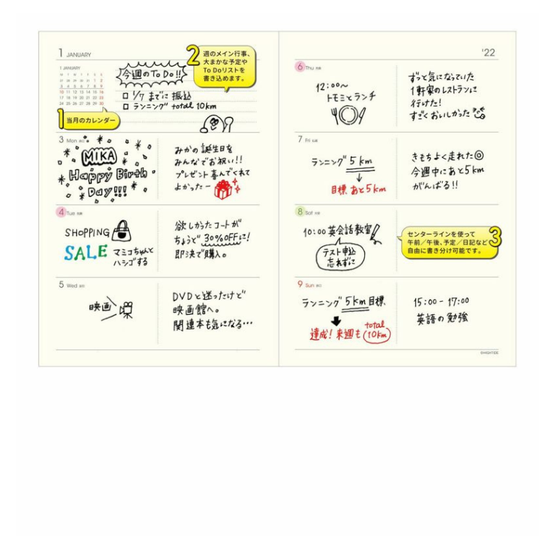 1 JANUARY
1 JANUARY
今週のTo Do!!
□ 1/7 までに 振込
□ ランニング total 10km
2
週のメイン行事、
大まかな予定や
To Doリストを
書き込めます。
1
当月のカレンダー
3 Mon
MIKA
Happy Birth
Day!!!
みかの誕生日を
みんなでお祝い!!
プレゼント喜んでくれて
よかったー
4 Tue
SHOPPING
SALE
マミコちゃんと
ハシゴする
欲しかったコートが
ちょうど30%OFFに!
即決で購入。
5 Wed
映画
DVDと迷ったけど
映画館へ。
関連本も気になる…
'22
6 Thu
12:00〜
トモミとランチ
ずっと気になっていた
1軒家のレストランに
行けた!
すごくおいしかった
7 Fri
ランニング 5km
目標 あと5km
きもちよく走れた◎
今週中にあと5km
がんばる!!
8 Sat
10:00 英会話教室
テスト申込
忘れずに
3
センターラインを使って
午前/午後、予定/日記など
自由に書き分け可能です。
9 Sun
ランニング 5km 目標
達成! 来週も total 10km
15:00 - 17:00
英語の勉強